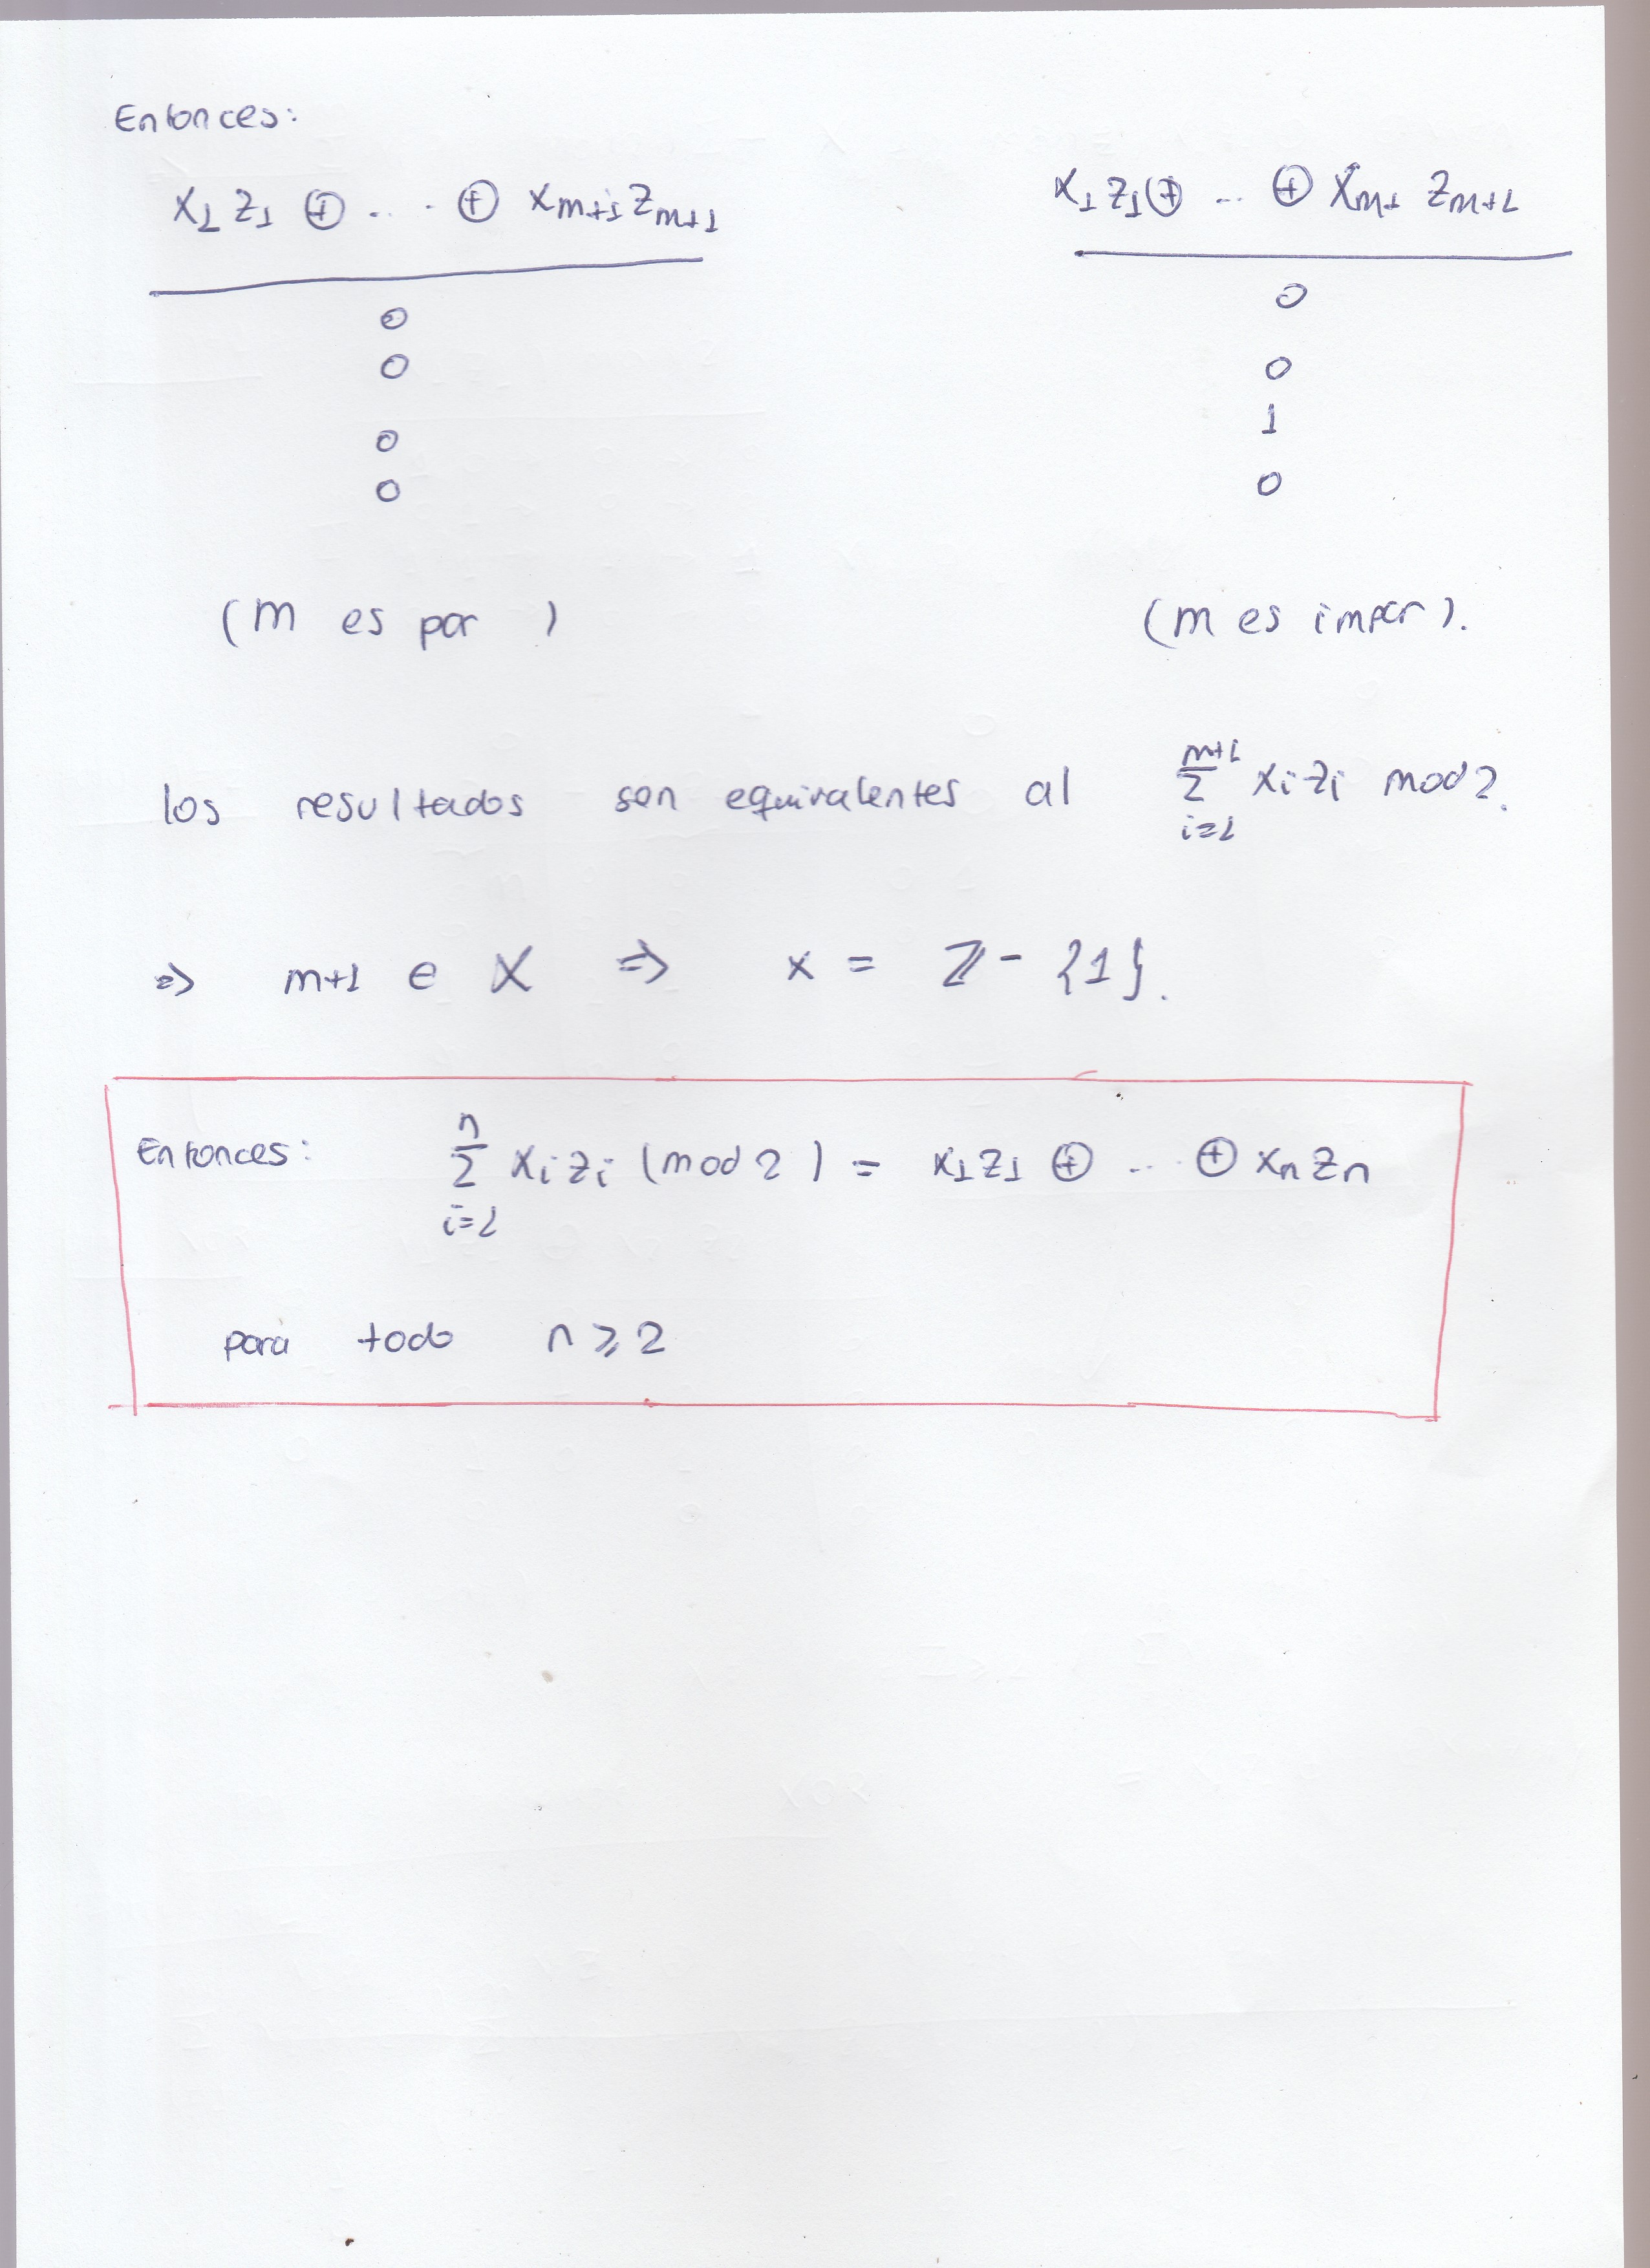 Entonces:
x₁ z₁ ⊕ ... ⊕ xₘ₊₁ zₘ₊₁
x₁ z₁ ⊕ ... ⊕ xₘ₊ zₘ₊₁
0 0
0 0
0 1
0 0
(m es par )
(m es impar).
los resultados son equivalentes al ∑ᵢ₌₁ᵐ⁺¹ xᵢ zᵢ mod 2.
=> m+1 e X => x = ℤ - {1}.
Entonces: ∑ᵢ₌₁ⁿ xᵢ zᵢ (mod 2) = x₁z₁ ⊕ ... ⊕ xₙ zₙ
para todo n ⩾ 2